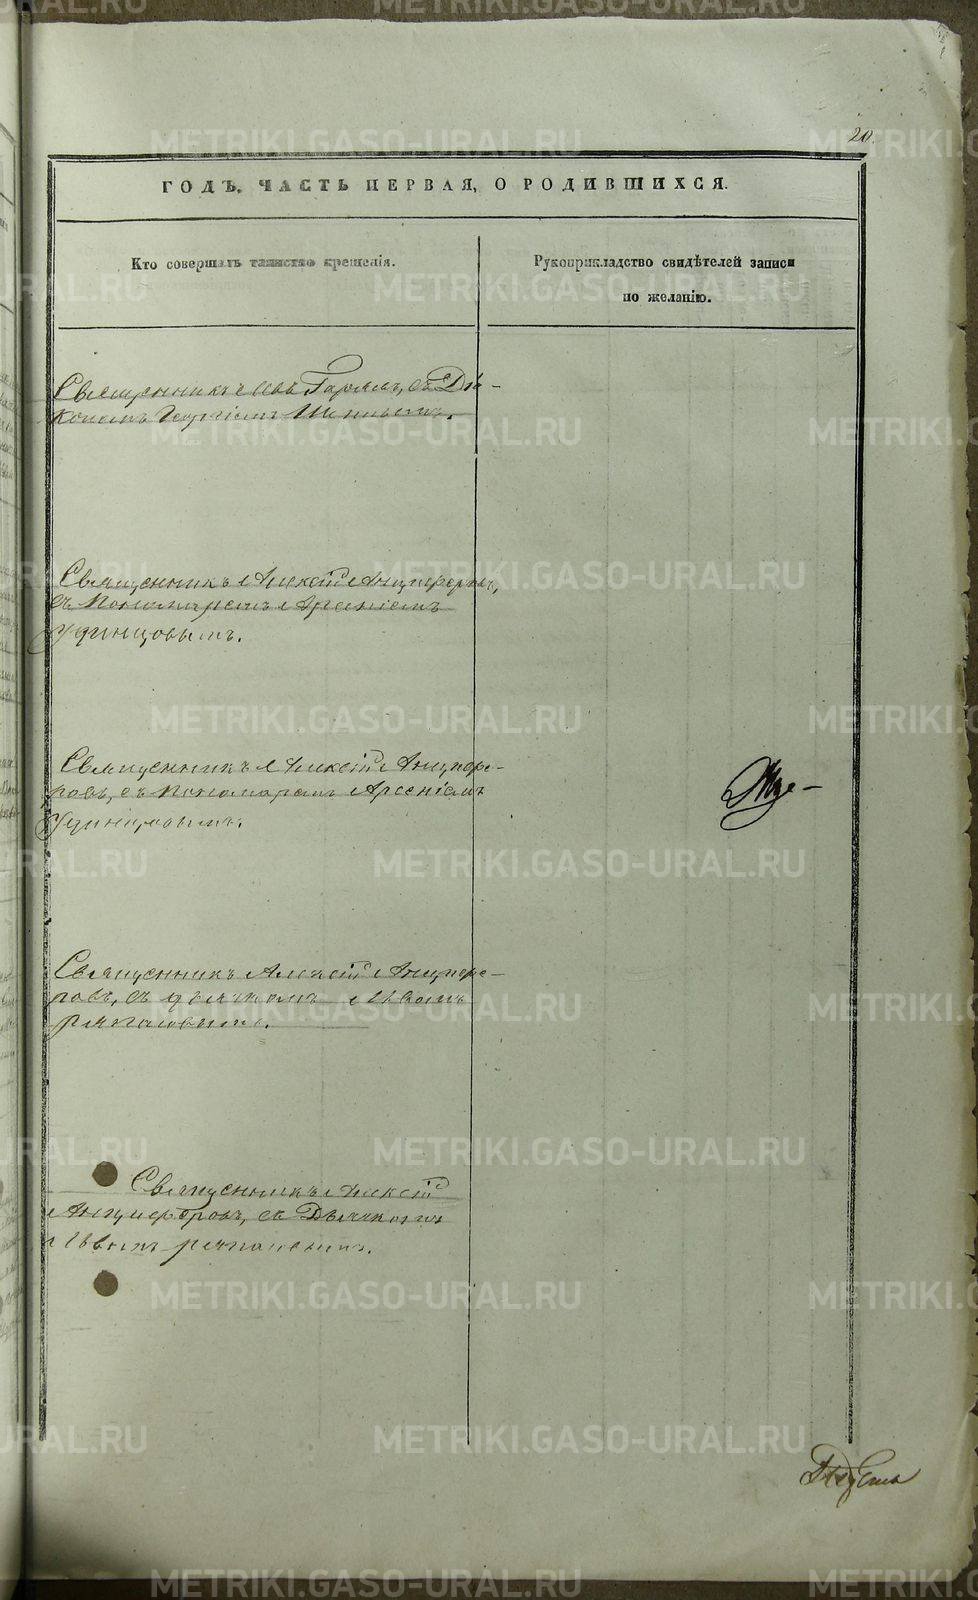 20.
ГОДЪ, ЧАСТЬ ПЕРВАЯ, О РОДИВШИХСЯ.
Кто совершалъ таинство крещенія.
Рукоприкладство свидѣтелей записи
по желанію.
Священникъ Іовъ, съ Діа-
кономъ Георгіемъ
Священникъ Алексій Анциферовъ,
съ Пономаремъ Арсеніемъ
Удинцовымъ.
Священникъ Алексій Анцифе-
ровъ, съ Пономаремъ Арсеніемъ
Удинцовымъ.
Священникъ Алексій Анцифе-
ровъ, съ дьячкомъ Иваномъ
Священникъ Алексій
Анциферовъ, съ Дьячкомъ
METRIKI.GASO-URAL.RU